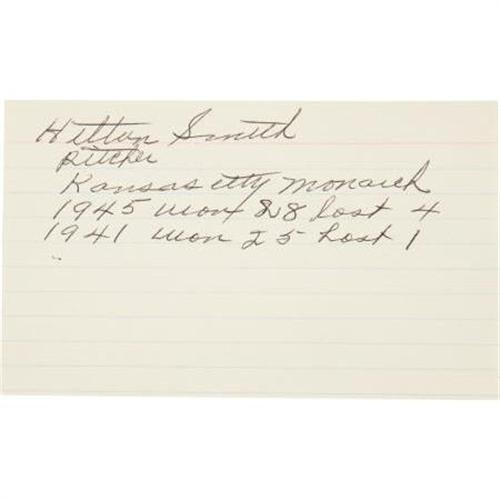 Hilton Smith
pitcher
Kansas city monarch
1945 won 28 lost 4
1941 won 25 Lost 1